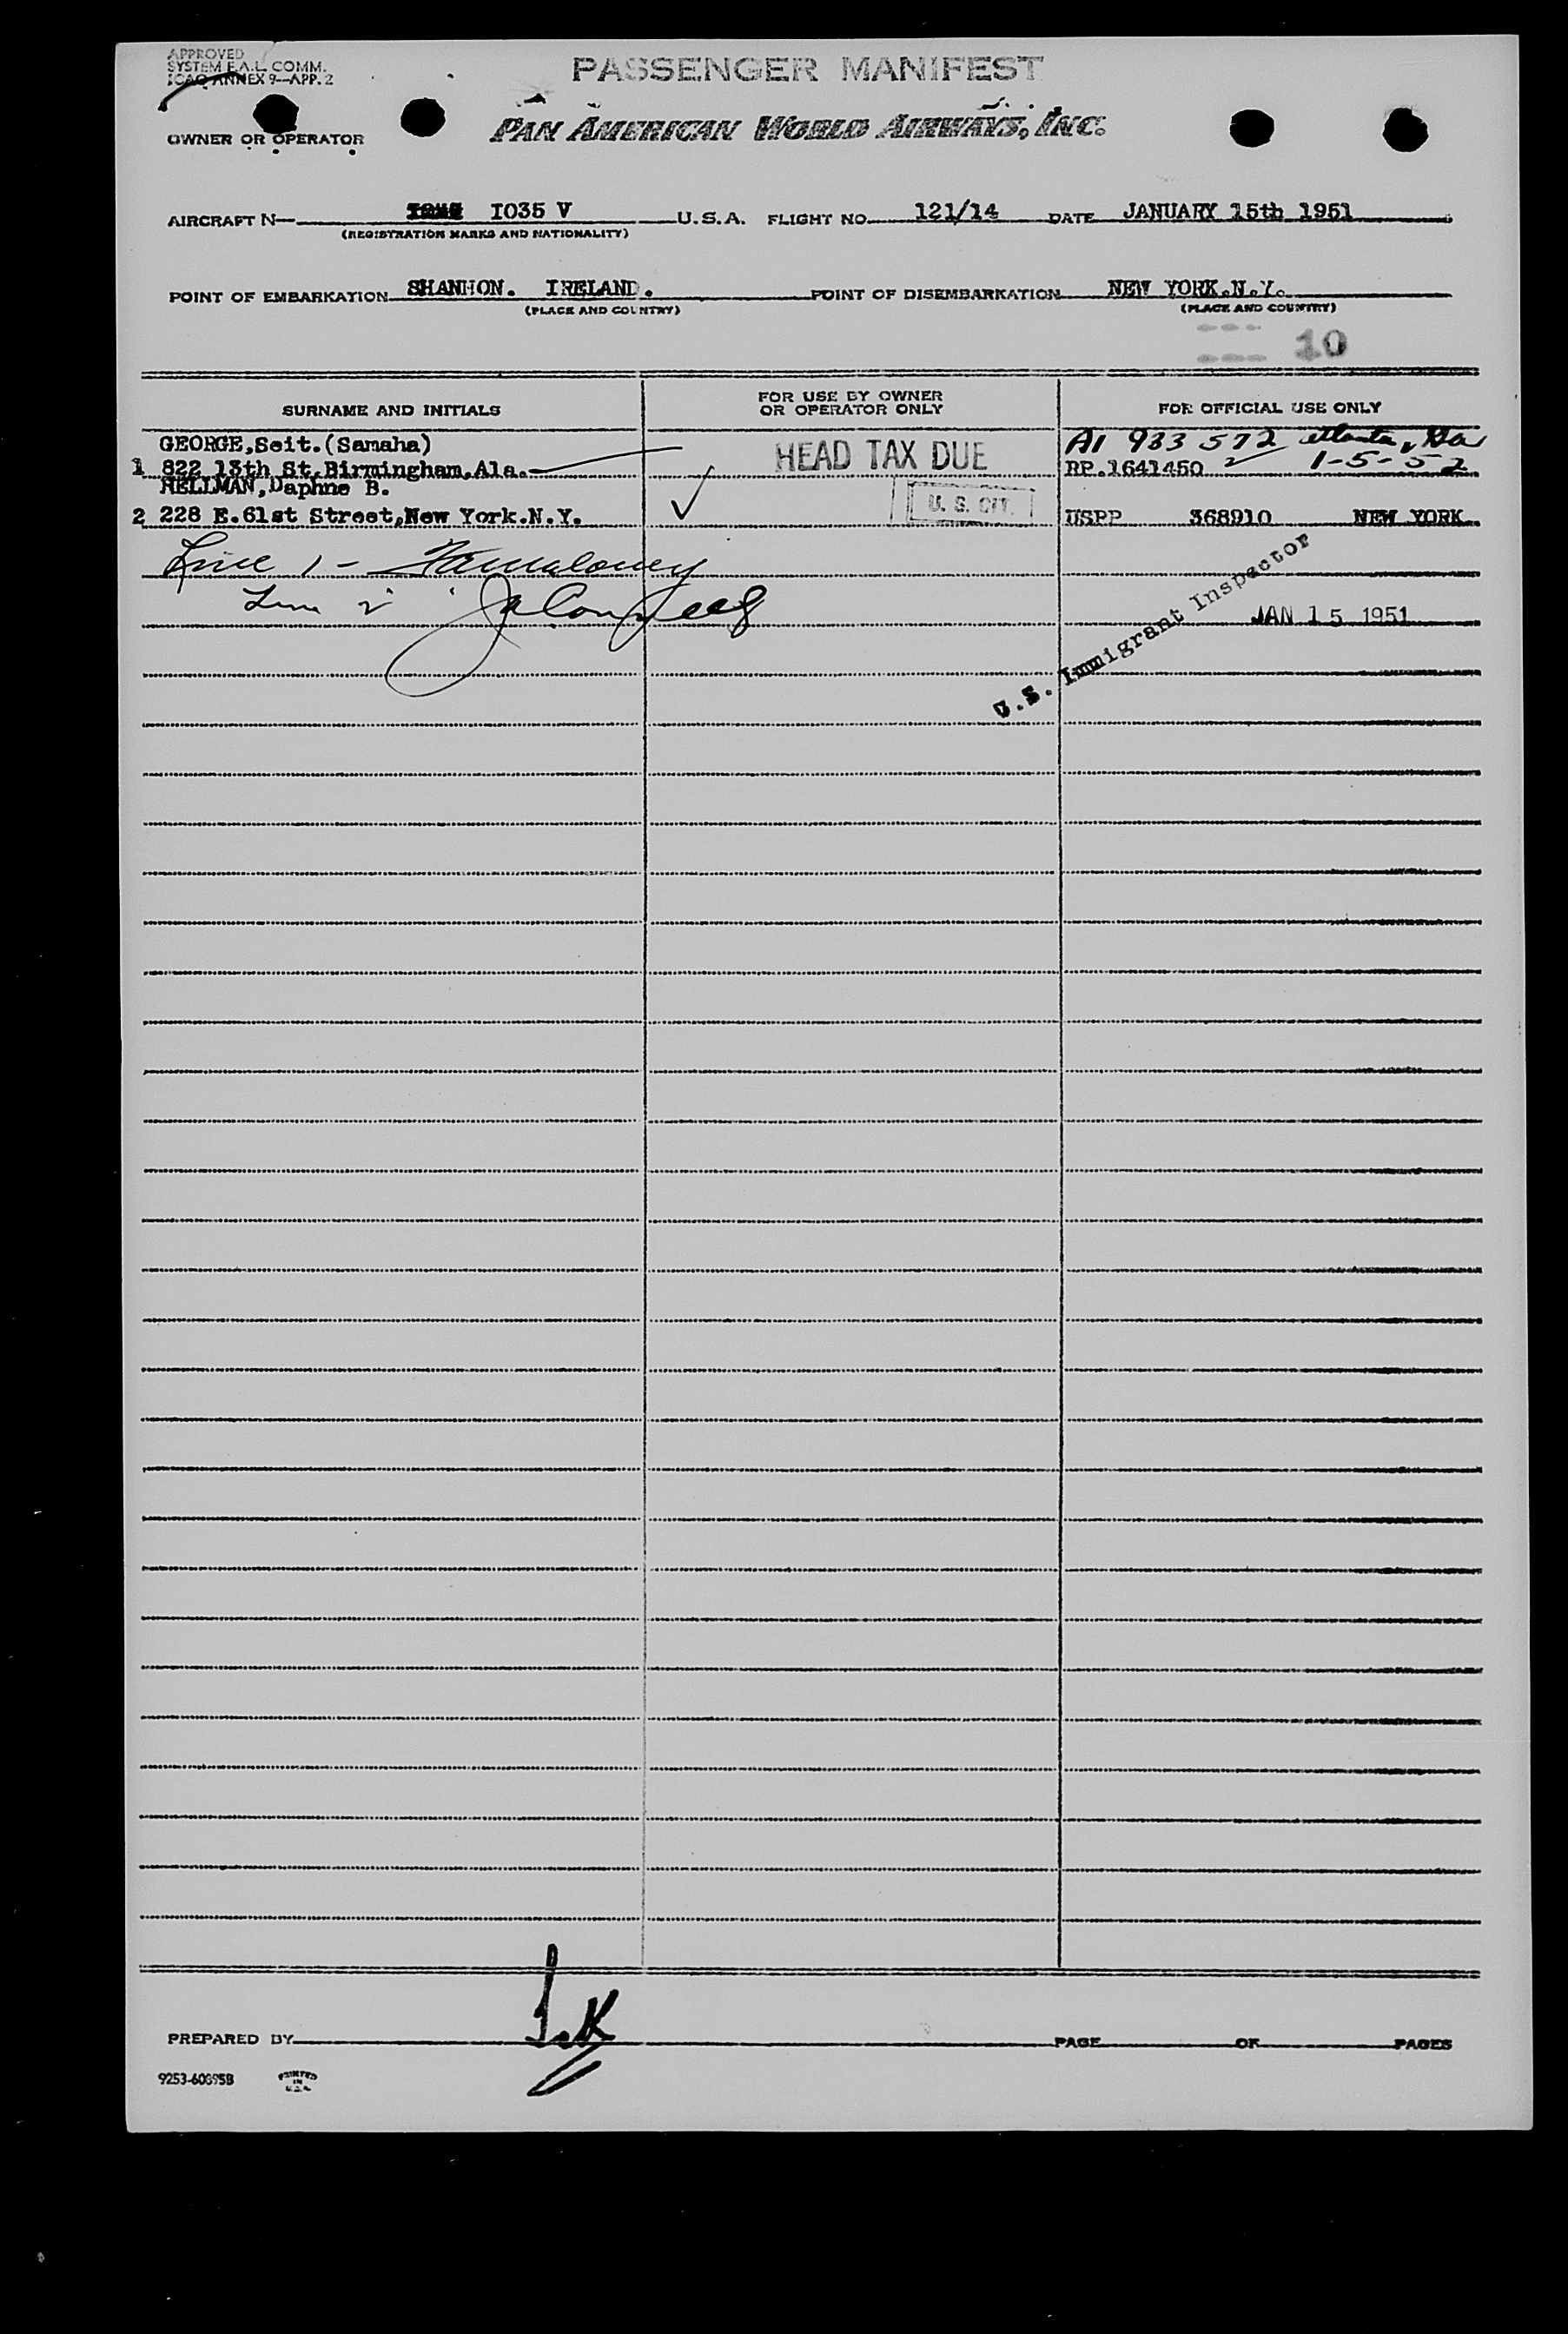 APPROVED
SYSTEM F.A.L. COMM.
ICAO ANNEX 9—APP. 2
PASSENGER MANIFEST
OWNER OR OPERATOR
PAN AMERICAN WORLD AIRWAYS, INC.
AIRCRAFT N— 1035 V U.S.A. FLIGHT NO. 121/14 DATE JANUARY 15th 1951
(REGISTRATION MARKS AND NATIONALITY)
POINT OF EMBARKATION SHANNON. IRELAND. POINT OF DISEMBARKATION NEW YORK.N.Y.
(PLACE AND COUNTRY) (PLACE AND COUNTRY)
10
SURNAME AND INITIALS FOR USE BY OWNER OR OPERATOR ONLY FOR OFFICIAL USE ONLY
GEORGE,Seit.(Samaha) HEAD TAX DUE A1 933 572 Atlanta, Ga
1 822 13th St.Birmingham.Ala. RP.1641450 1-5-52
HELLMAN,Daphne B.
2 228 E.61st Street,New York.N.Y. U. S. CIT. USPP 368910 NEW YORK
Line 1 -
Line 2
U.S. Immigrant Inspector
JAN 15 1951
PREPARED BY PAGE OF PAGES
9253-60895B PRINTED IN U.S.A.